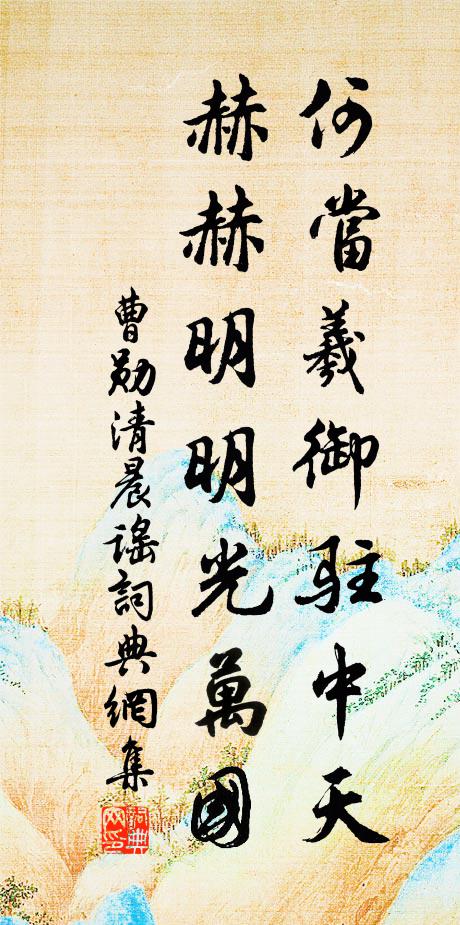 何當羲御駐中天
赫赫明明光萬國
曹勛清晨謠詞典網集
詞典
網印